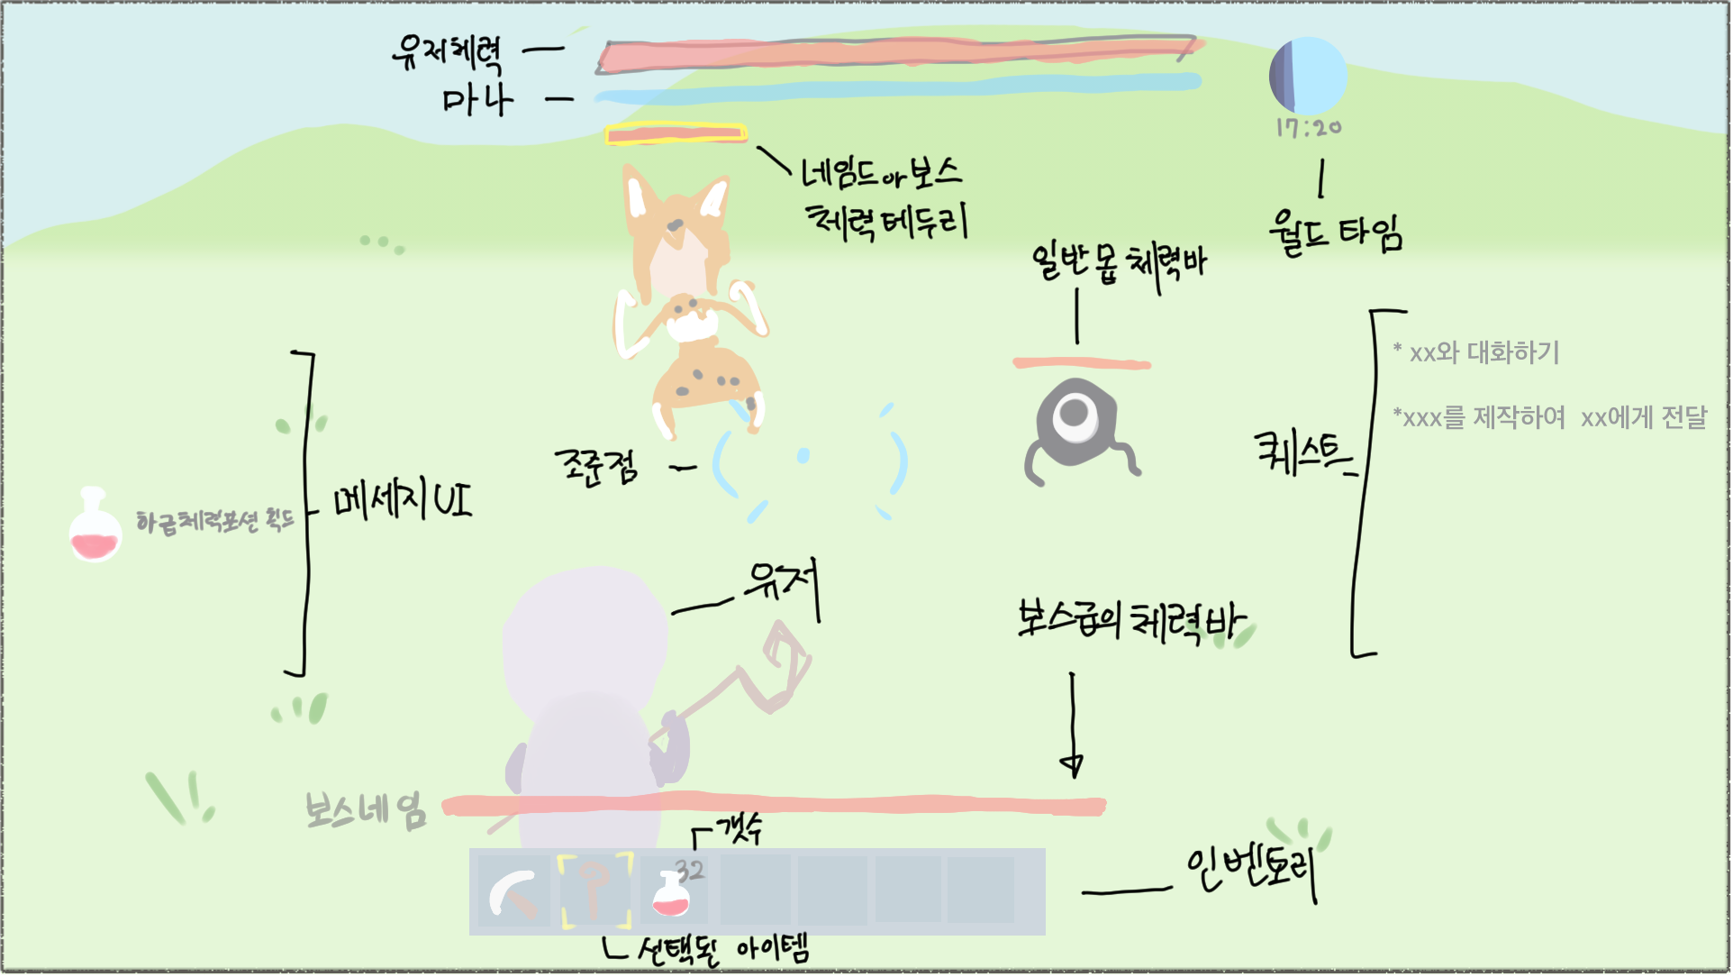 유저체력
마나
17:20
네임드or보스
체력테두리
월드 타임
일반 몹 체력바
* xx와 대화하기
*xxx를 제작하여 xx에게 전달
퀘스트
조준점
메세지UI
하급체력포션 획득
유저
보스급의 체력바
보스네임
갯수
32
인벤토리
선택된 아이템